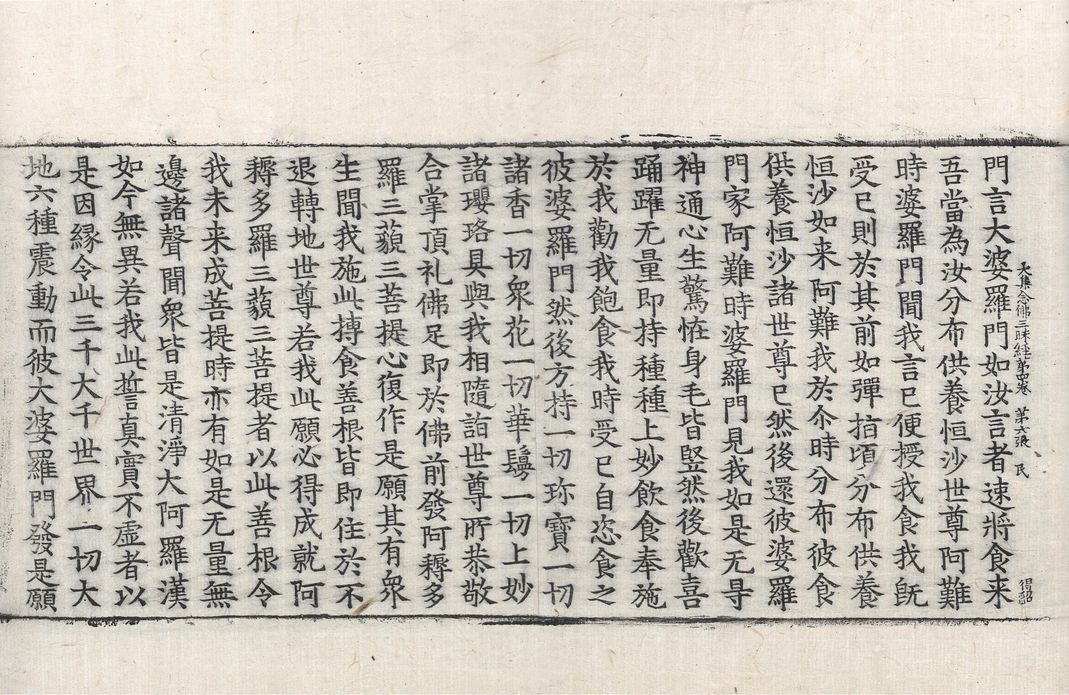 門言大婆羅門如汝言者速將食来
大集念佛三昧經第四卷 第六張 民
吾當為汝分布供養恒沙世尊阿難
時婆羅門聞我言已便授我食我旣
受已則於其前如彈指頃分布供養
恒沙如来阿難我於尒時分布彼食
供養恒沙諸世尊已然後還彼婆羅
門家阿難時婆羅門見我如是无㝵
神通心生驚恠身毛皆竪然後歡喜
踊躍无量即持種種上妙飲食奉施
於我勸我飽食我時受已自恣食之
彼婆羅門然後方持一切珎寶一切
諸香一切衆花一切華鬘一切上妙
諸瓔珞具與我相隨詣世尊所恭敬
合掌頂礼佛足即於佛前發阿耨多
羅三藐三菩提心復作是願其有衆
生聞我施此摶食善根皆即住於不
退轉地世尊若我此願必得成就阿
耨多羅三藐三菩提者以此善根令
我未来成菩提時亦有如是无量無
邊諸聲聞衆皆是清淨大阿羅漢
如今無異若我此誓真實不虛者以
是因緣令此三千大千世界一切大
地六種震動而彼大婆羅門發是願